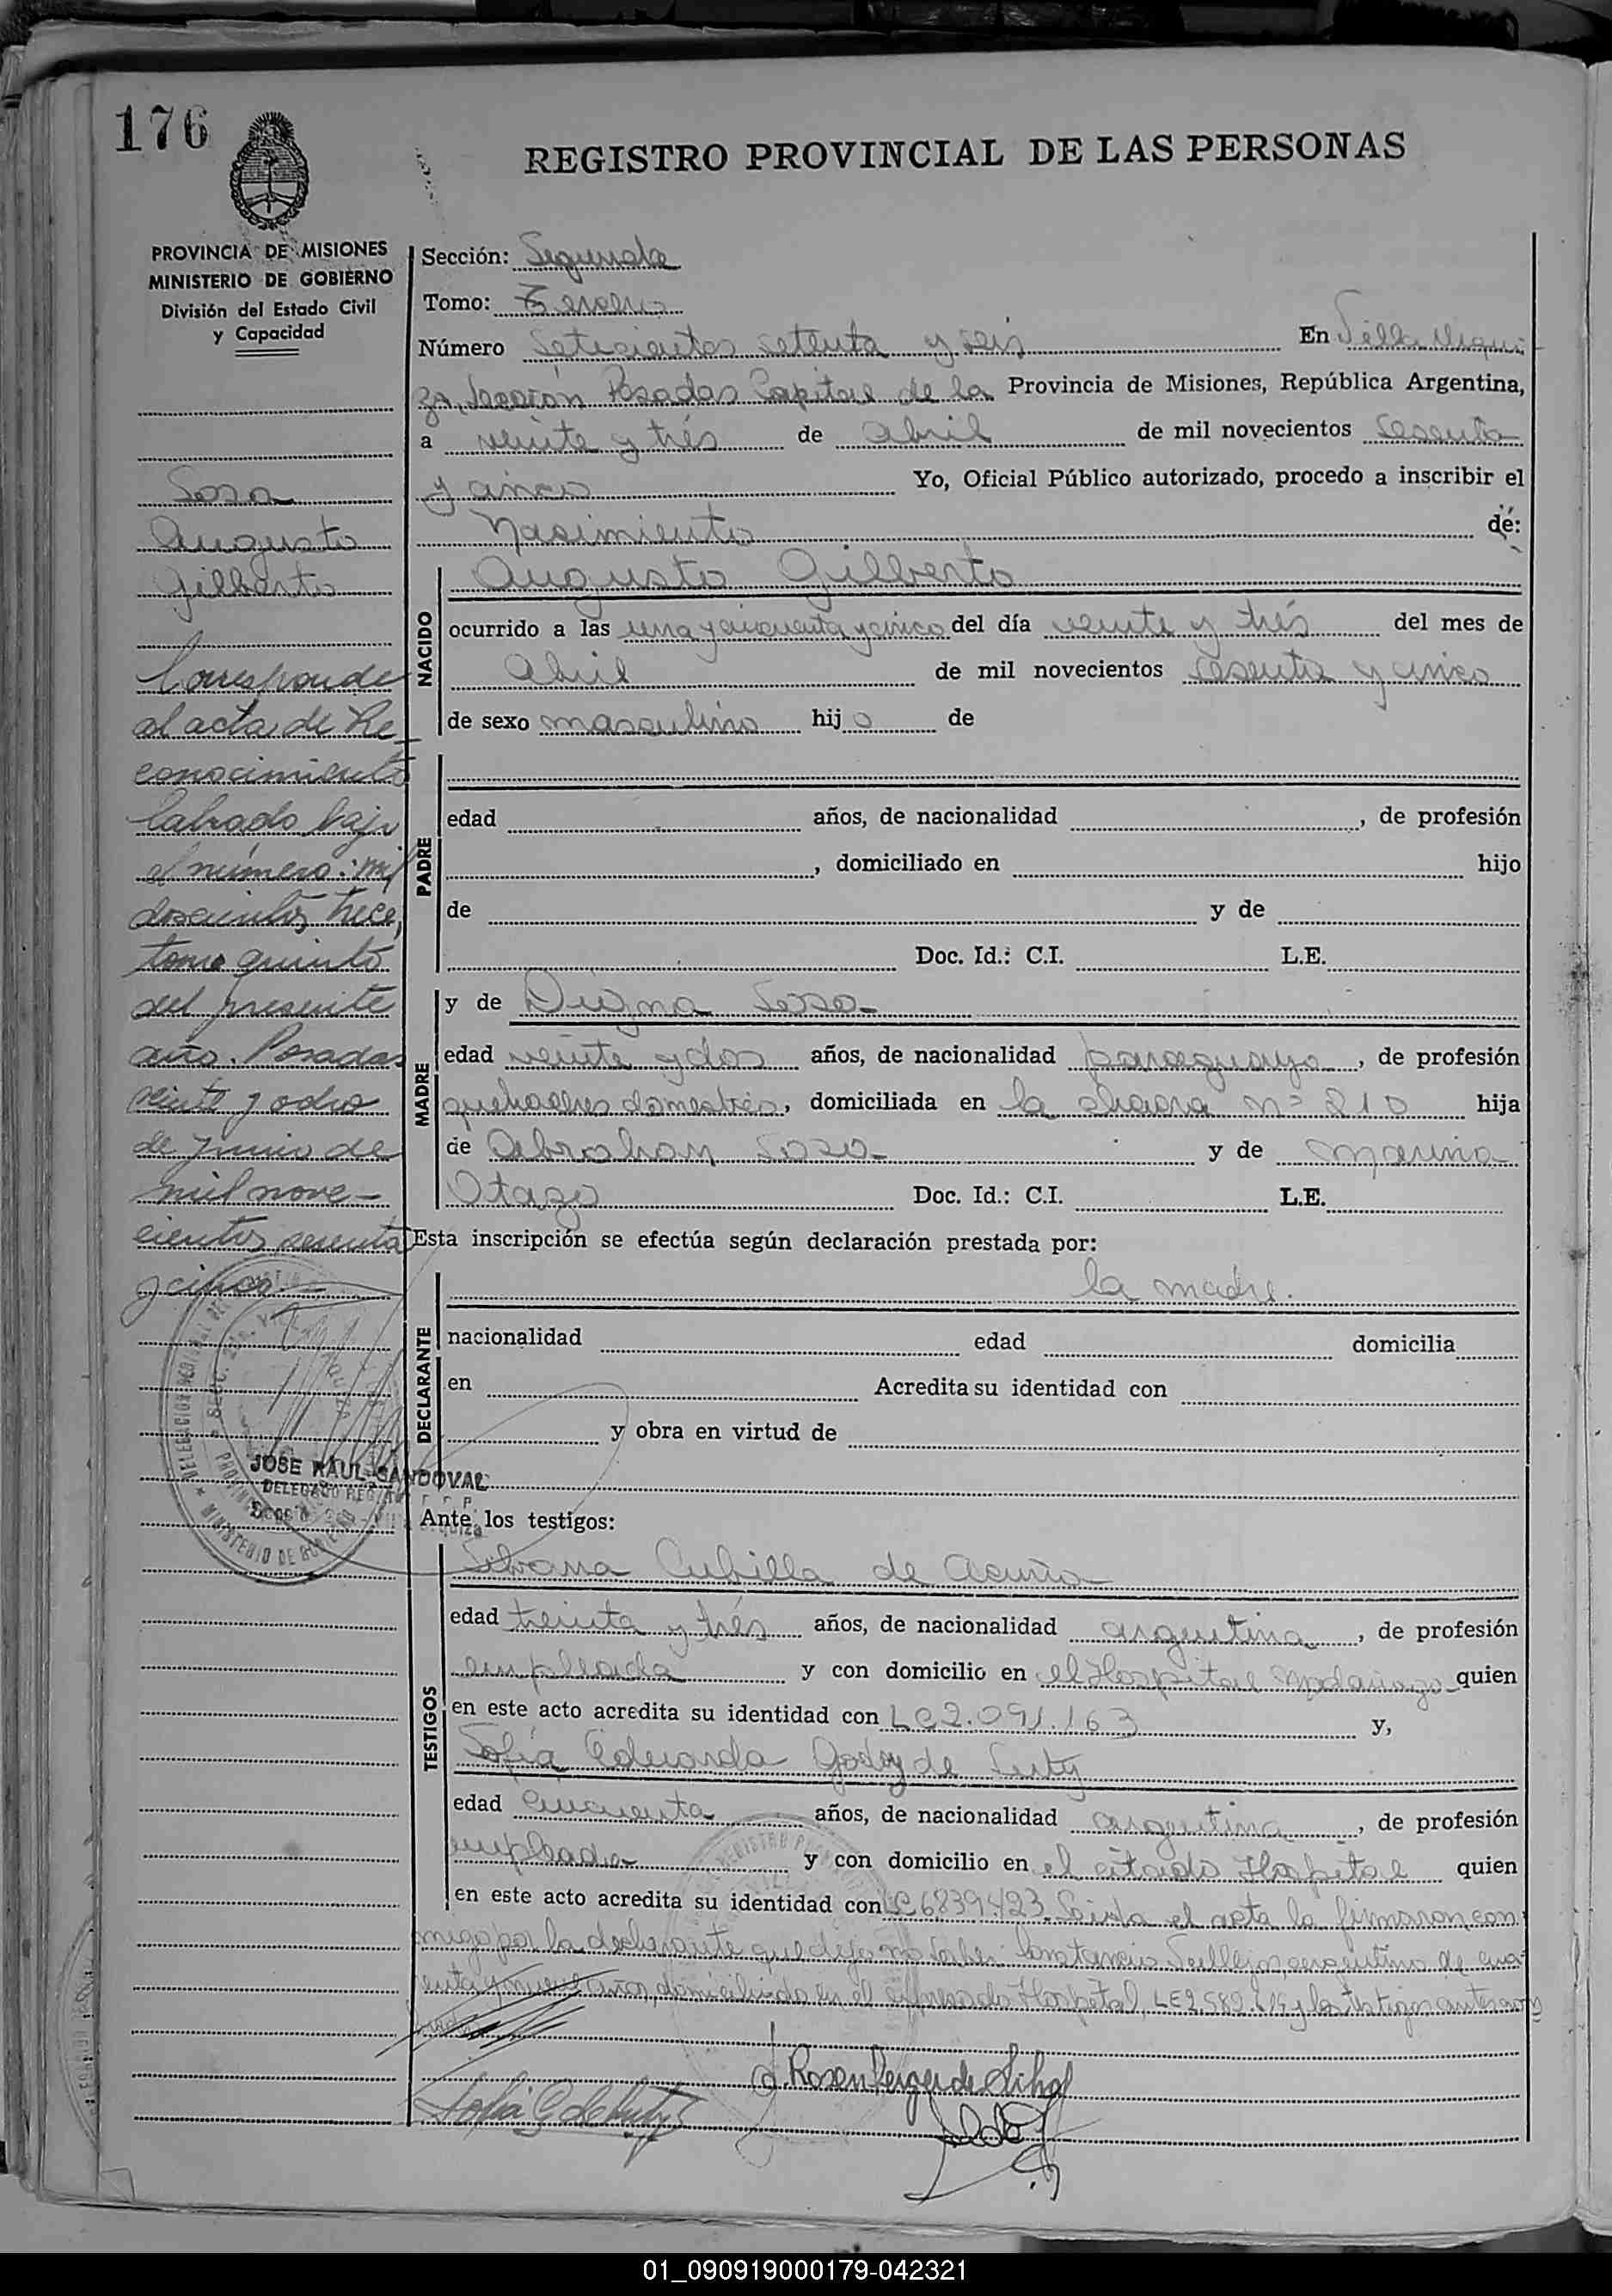 176
REGISTRO PROVINCIAL DE LAS PERSONAS
PROVINCIA DE MISIONES
MINISTERIO DE GOBIERNO
División del Estado Civil
y Capacidad
Sosa
Augusto
Gilberto
Corresponde
al acta de Re
conocimiento
labrado bajo
el número: mil
doscientos trece,
tomo quinto
del presente
año. Posadas
veinte y ocho
de junio de
mil nove-
cientos sesenta
y cinco.-
JOSE RAUL SANDOVAL
DELEGADO
Sección: Segunda
Tomo: Tercero
Número Setecientos setenta y seis En Villa Urqui
za, Sección Posadas Capital de la Provincia de Misiones, República Argentina,
a veinte y trés de abril de mil novecientos sesenta
y cinco Yo, Oficial Público autorizado, procedo a inscribir el
Nacimiento de:
NACIDO
Augusto Gilberto
ocurrido a las una y cincuenta y cinco del día veinte y trés del mes de
Abril de mil novecientos sesenta y cinco
de sexo masculino hijo de
PADRE
edad años, de nacionalidad , de profesión
, domiciliado en hijo
de y de
Doc. Id.: C.I. L.E.
MADRE
y de Digna Sosa
edad veinte y dos años, de nacionalidad paraguaya, de profesión
quehaceres domestrés, domiciliada en la chacra nº 210 hija
de Abraham Sosa y de Marina
Otazo Doc. Id.: C.I. L.E.
Esta inscripción se efectúa según declaración prestada por:
DECLARANTE
la madre.
nacionalidad edad domicilia
en Acredita su identidad con
y obra en virtud de
Ante los testigos:
TESTIGOS
Silvana Cubilla de Acuña
edad treinta y trés años, de nacionalidad argentina, de profesión
empleada y con domicilio en el Hospital Madariaga quien
en este acto acredita su identidad con LC 2.091.163 y,
Sofía Eduarda Godoy de
edad cincuenta años, de nacionalidad argentina, de profesión
empleada y con domicilio en el citado Hospital quien
en este acto acredita su identidad con LC 6839423. Leida el acta la firmaron con
migo por la declarante que dijo no saber Constancio argentino de cua
renta y nueve años, domiciliado en el expresado Hospital, LE 2.582. y los testigos
01_090919000179-042321